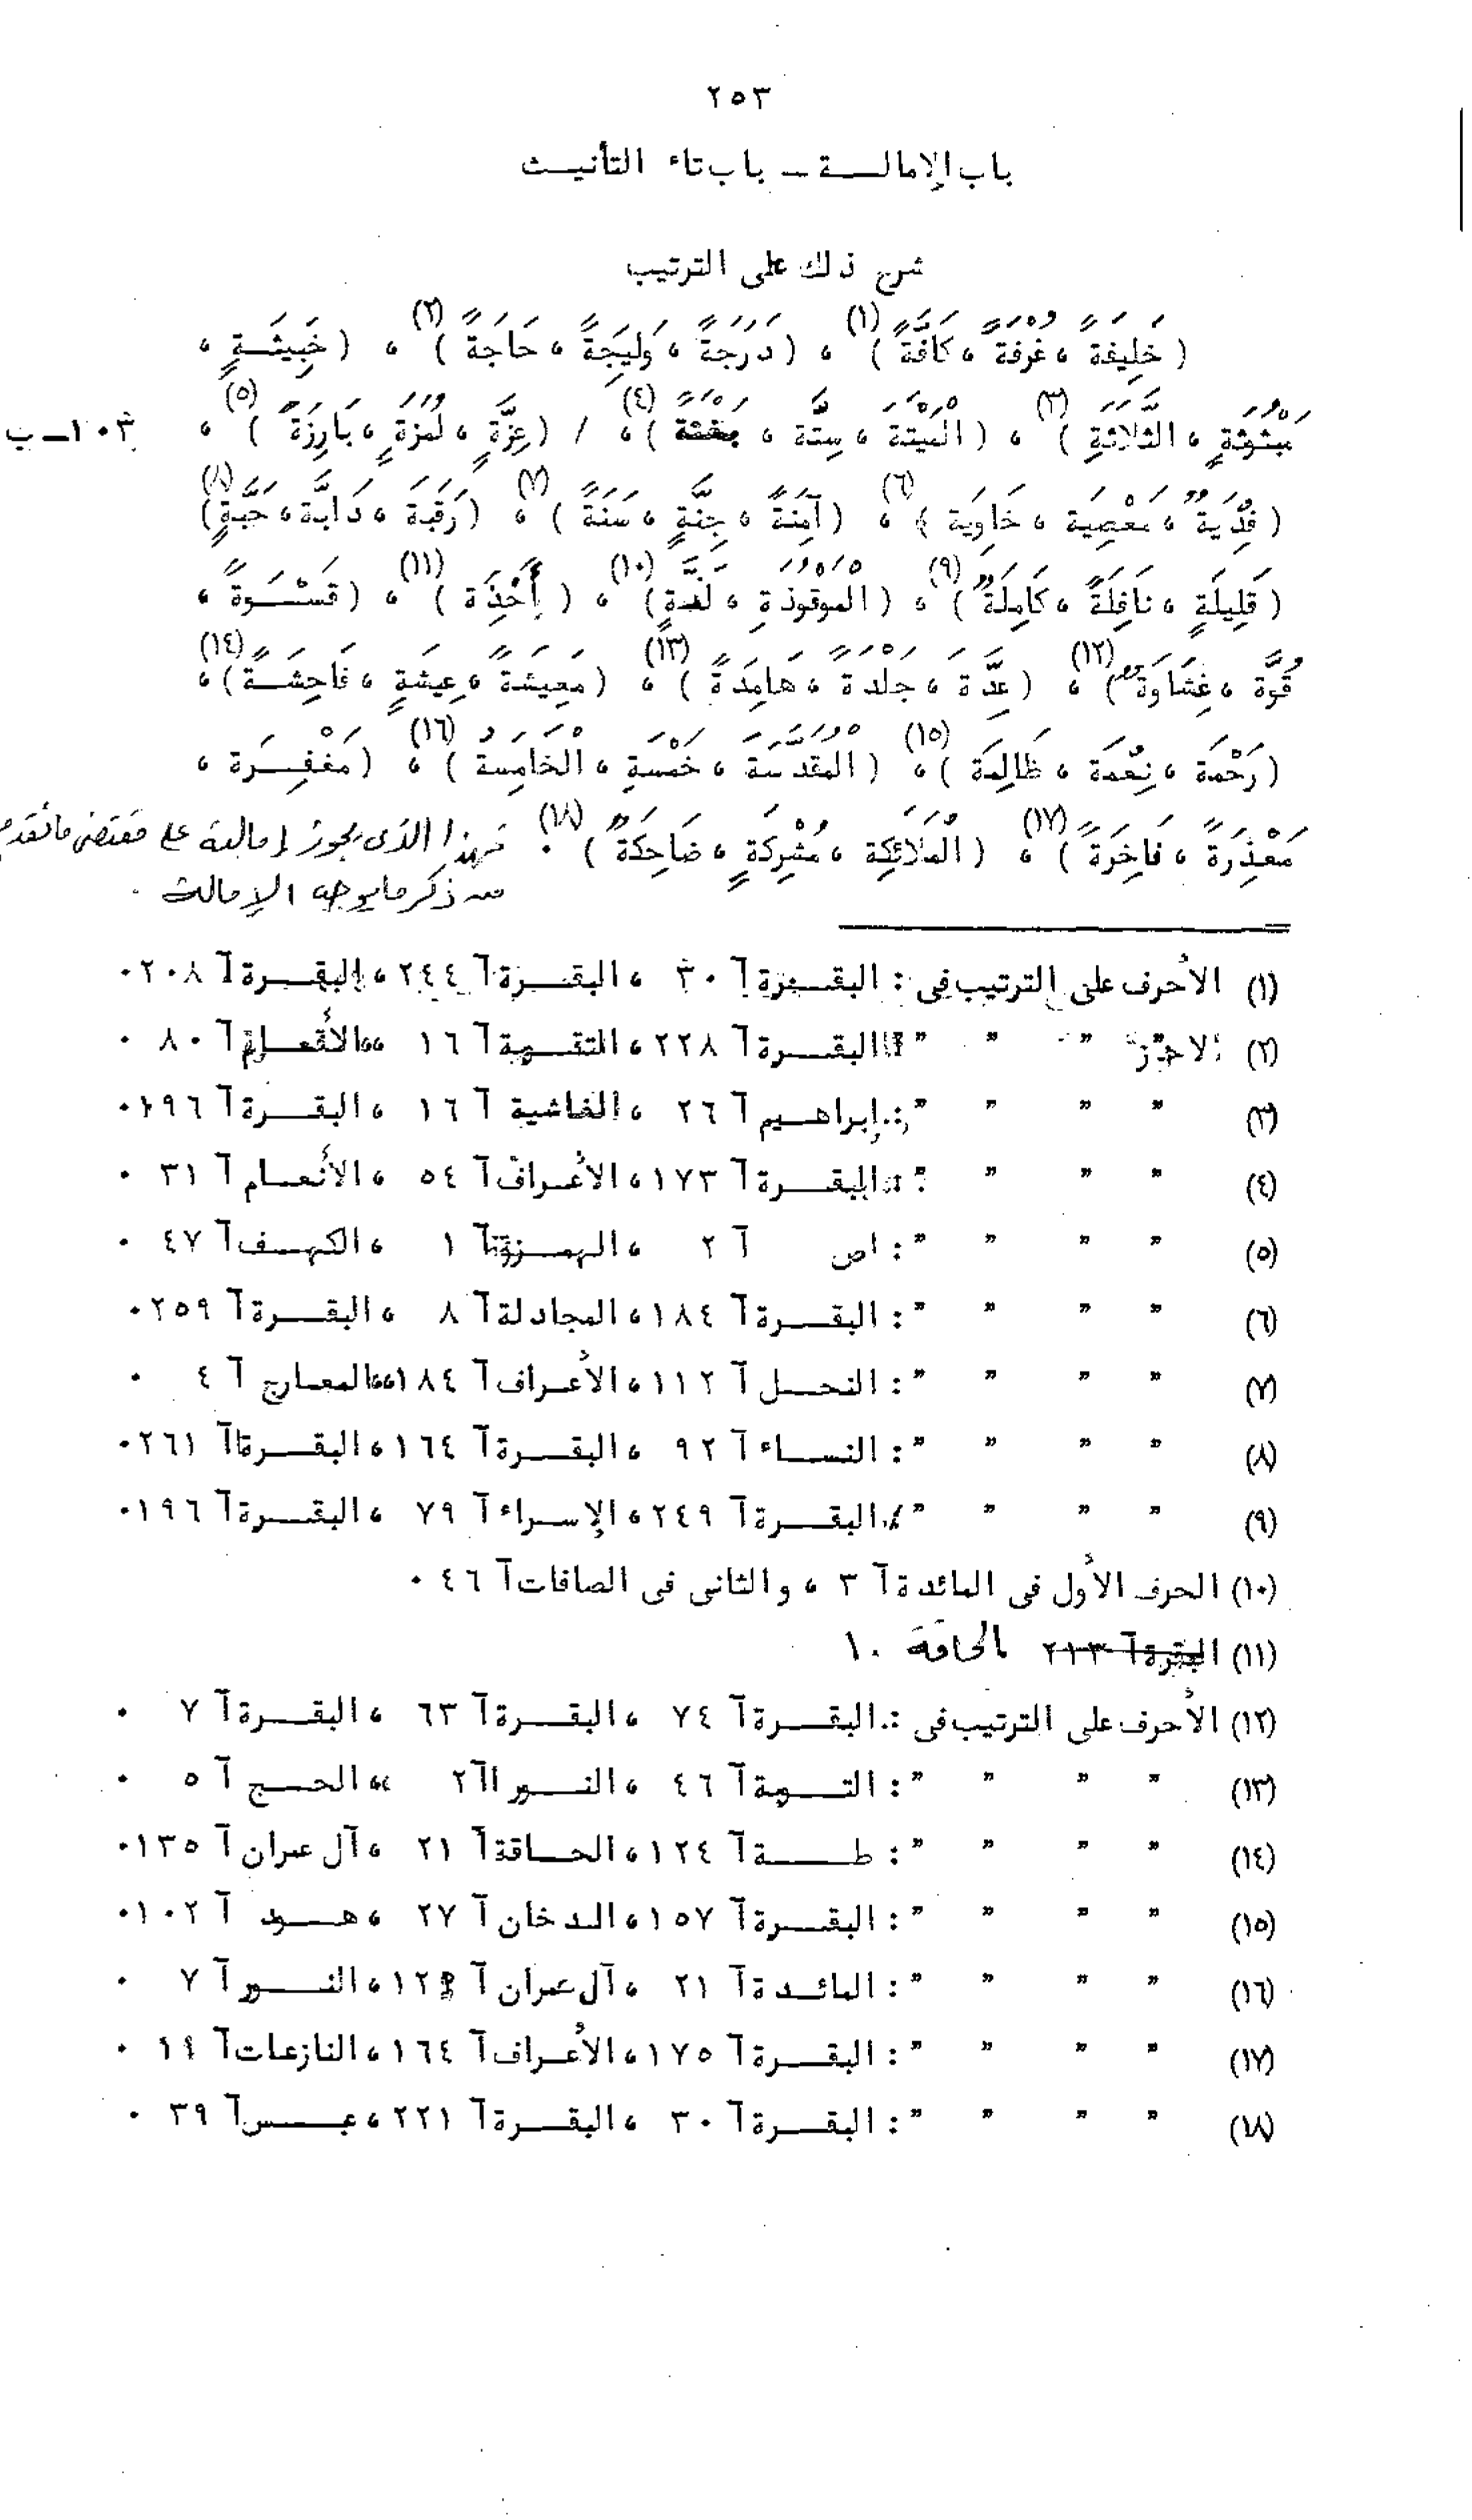 ٢٥٣
باب الإمالـــة ــ باب تاء التأنيـــث
شرح ذلك على الترتيب
( خَلِيفَةً ، غُرْفَةً ، كَافَّةً )(١) ، ( دَرَجَةً ، وَلِيجَةً ، حَاجَةً )(٢) ، ( خَبِيثَــةٍ ،
مَبْثُوثَةٍ ، الثَّلَاثَةِ )(٣) ، ( الْمَيْتَةَ ، سِتَّة ، بَغْتَةً )(٤) ، / ( عِزَّةٍ ، لُمَزَةٍ ، بَارِزَةً )(٥) ، ١٠٣ــ ب
( فِدْيَةٌ ، مَعْصِيَة ، خَاوِيَة )(٦) ، ( آمِنَةً ، جِنَّةٍ ، سَنَةً )(٧) ، ( رَقَبَة ، دَابَّة ، حَبَّةٍ )(٨)
( قَلِيلَةٍ ، نَافِلَةً ، كَامِلَةٌ )(٩) ، ( الْمَوْقُوذَةِ ، لَذَّةٍ )(١٠) ، ( أَخْذَة )(١١) ، ( قَسْــوَةً ،
قُوَّة ، غِشَاوَةٌ )(١٢) ، ( عِدَّة ، جَلْدَةً ، هَامِدَةً )(١٣) ، ( مَعِيشَةً ، عِيشَةٍ ، فَاحِشَــةً )(١٤) ،
( رَحْمَة ، نِعْمَة ، ظَالِمَة )(١٥) ، ( الْمُقَدَّسَةَ ، خَمْسَةِ ، الْخَامِسَةُ )(١٦) ، ( مَغْفِــرَة ،
مَعْذِرَةً ، نَاخِرَةً )(١٧) ، ( الْمَلَائِكَة ، مُشْرِكَةٍ ، ضَاحِكَةٌ )(١٨) . فهذا الذى يجوز إمالته على مقتضى ما تقدم
من ذكر ما يوجب الإمالة .
(١) الأحرف على الترتيب فى : البقــرة آ ٣٠ ، البقــرة آ ٢٤٤ ، البقــرة آ ٢٠٨ .
(٢) " " " : البقــرة آ ٢٢٨ ، التــوبة آ ١٦ ، الأنعــام آ ٨٠ .
(٣) " " " " : إبراهــيم آ ٢٦ ، الغاشية آ ١٦ ، البقــرة آ ١٩٦ .
(٤) " " " " : البقــرة آ ١٧٣ ، الأعراف آ ٥٤ ، الأنعــام آ ٣١ .
(٥) " " " " : ص آ ٢ ، الهمــزة آ ١ ، الكهــف آ ٤٧ .
(٦) " " " " : البقــرة آ ١٨٤ ، المجادلة آ ٨ ، البقــرة آ ٢٥٩ .
(٧) " " " " : النحــل آ ١١٢ ، الأعــراف آ ١٨٤ ، المعــارج آ ٤ .
(٨) " " " " : النســاء آ ٩٢ ، البقــرة آ ١٦٤ ، البقــرة آ ٢٦١ .
(٩) " " " " : البقــرة آ ٢٤٩ ، الإســراء آ ٧٩ ، البقــرة آ ١٩٦ .
(١٠) الحرف الأول فى المائدة آ ٣ ، والثانى فى الصافات آ ٤٦ .
(١١) البقرة آ ٢١٣ الحاقة ١٠
(١٢) الأحرف على الترتيب فى : البقــرة آ ٧٤ ، البقــرة آ ٦٣ ، البقــرة آ ٧ .
(١٣) " " " " : التــوبة آ ٤٦ ، النــور آ ٢ ، الحــج آ ٥ .
(١٤) " " " " : طــه آ ١٢٤ ، الحــاقة آ ٢١ ، آل عمران آ ١٣٥ .
(١٥) " " " " : البقــرة آ ١٥٧ ، الدخان آ ٢٧ ، هــود آ ١٠٢ .
(١٦) " " " " : المائــدة آ ٢١ ، آل عمران آ ، النــور آ ٧ .
(١٧) " " " " : البقــرة آ ١٧٥ ، الأعــراف آ ١٦٤ ، النازعات آ ١١ .
(١٨) " " " " : البقــرة آ ٣٠ ، البقــرة آ ٢٢١ ، عبــس آ ٣٩ .